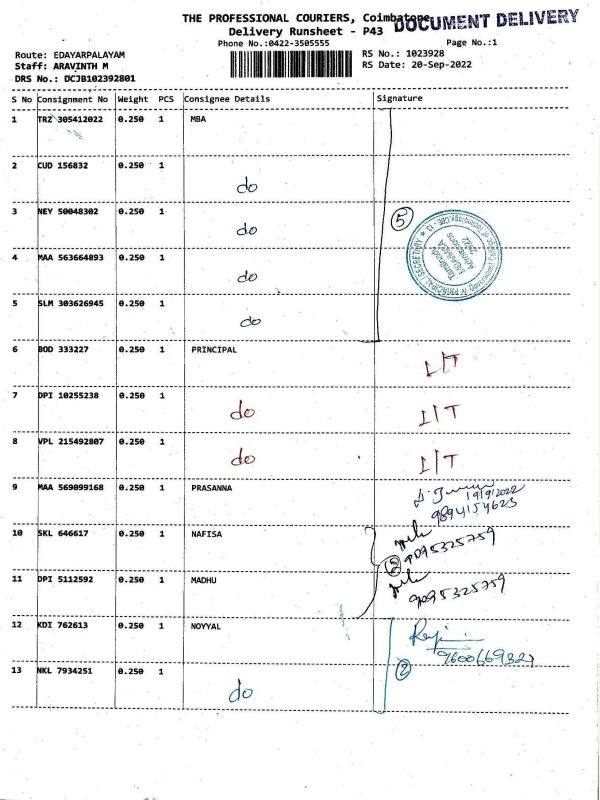 THE PROFESSIONAL COURIERS, Coimbatore
DOCUMENT DELIVERY
Delivery Runsheet - P43
Phone No.:0422-3505555
Page No.:1
Route: EDAYARPALAYAM
RS No.: 1023928
Staff: ARAVINTH M
RS Date: 20-Sep-2022
DRS No.: DCJB102392801
S No Consignment No Weight PCS Consignee Details Signature
1 TRZ 305412022 0.250 1 MBA
2 CUD 156832 0.250 1 do
3 NEY 50048302 0.250 1 do
5
4 MAA 563664893 0.250 1 do
5 SLM 303626945 0.250 1 do
6 BOD 333227 0.250 1 PRINCIPAL I/T
7 DPI 10255238 0.250 1 do I/T
8 VPL 215492807 0.250 1 do I/T
9 MAA 569099168 0.250 1 PRASANNA
19/9/2022
9894154623
10 SKL 646617 0.250 1 NAFISA
9095325759
11 DPI 5112592 0.250 1 MADHU
9095325759
12 KDI 762613 0.250 1 NOYYAL
13 NKL 7934251 0.250 1 do 2